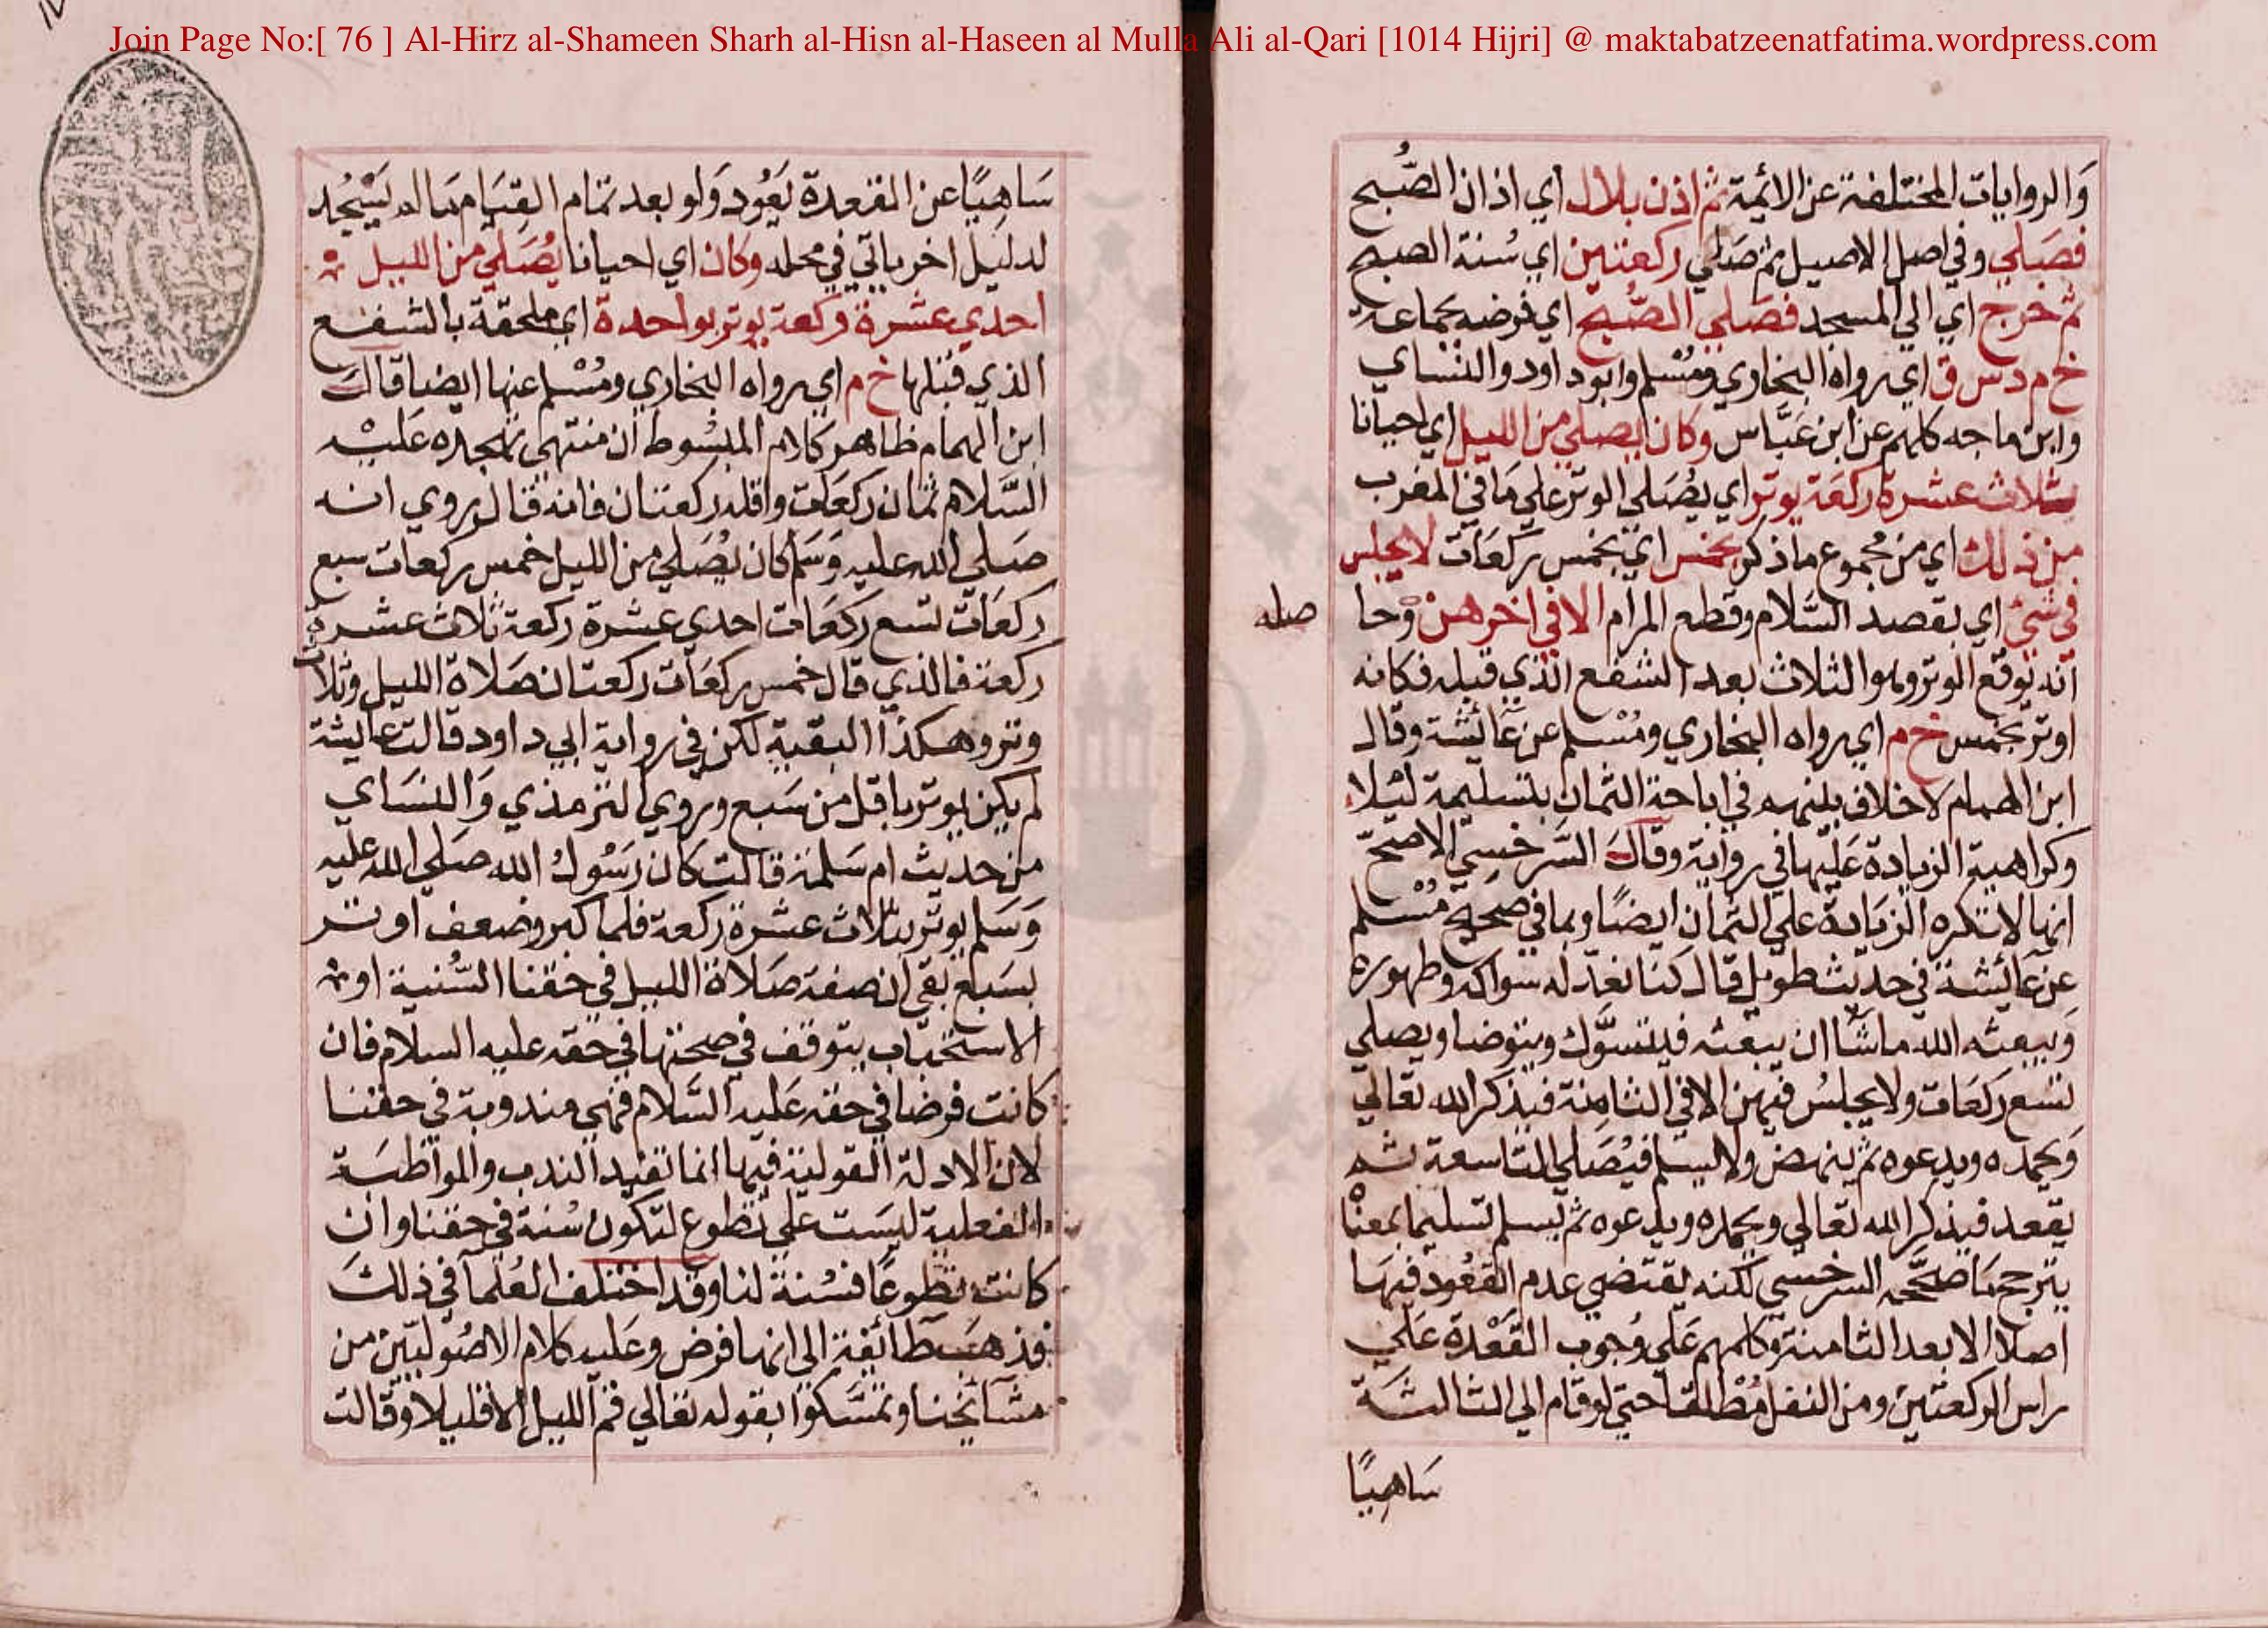 Join Page No:[ 76 ] Al-Hirz al-Shameen Sharh al-Hisn al-Haseen al Mulla Ali al-Qari [1014 Hijri] @ maktabatzeenatfatima.wordpress.com
وَالروايات المختلفة عن الائمة ثم اذن بلال اي اذان الصُّبح
فصَلي وفي اصل الاصيل ثم صَلي ركعتين اي سُنة الصبح
ثم خرج اي الي المسجد فصَلي الصُّبح اي فرضه بجماعة
خ م د س ق اي رواه البخاري ومُسْلم وابود اود والنسَاي
وابن ماجه كلهم عن ابن عَبَّاس وكان يصلي من الليل اي احيانا
ثلاث عشرة ركعَة يوتر اي يُصَلي الوتر علي مَا في المغرب
من ذلك اي من مُجموع ما ذكر بخمس اي بخمس ركعَات لا يجلس
في شيْ اي بقصد السَّلام وقطع المرام الا في اخرهن وحا
صله
انه يوقع الوتر وهو الثلاث بعد الشفع الذي قبله فكانه
اوتر بخمس خ م اي رواه البخاري ومُسْلم عن عَائشة وقال
ابن الهمام لا خلاف بينهم في اباحة الثمان بتسليمة ليْلا
وكراهية الزيادة عَليْها في رواية وقالَ السَّرخسِي الاصحّ
انها لا تكره الزيَادة علي الثمان ايضًا وبما في صحيح مُسْلم
عن عَائشة في حديث طويل قال كنا نعدّ له سواكه وطهوره
وَيبعثه الله ما شَاان يبعثه فيتسَوَّك ويتوضا ويصلي
تسع ركعَات ولا يجلسُ فيهن الا في الثامِنة فيذكر الله تعالي
وَيحمده ويدعوه ثم ينهض ولا يسلم فيُصَلي التاسعة ثم
يقعد فيذكر الله تعالي ويحمده ويدعوه ثم يسلم تسليما يسمعنا
يترجح مَا صحَّحه السرخسي لكنه يقتضي عدم القعُود فيهَا
اصلا الا بعد الثامنة وكلمهم عَلي وجُوب القَعْدة عَلي
راس الركعتين ومن النفل مُطلقا حتي لو قام الي الثالثة
سَاهيًا
سَاهيًا عن القعدة يَعُود وَلو بعد تمام القيَام مَا لم يَسْجُد
لدليل اخر ياتي في محله وكان اي احيانا يُصَلي من الليل
احدي عشرة ركعة يوتر بواحدة اي ملحقة بالشفع
الذي قبلها خ م اي رواه البخاري ومُسْلم عنها ايضا قالَ
ابن الهمام ظاهر كلام المبسُوط ان منتهي تهجده عَليْه
السَّلام ثمان ركعَات واقله ركعتان فانه قال روي انه
صَلي الله عليه وَسَلم كان يُصَلي من الليل خمس ركعات سبع
ركعَات تسع ركعَات احدي عشرة ركعة ثلاث عشرة
ركعة فالذي قال خمس ركعَات ركعتان صَلاة الليل وثلاث
وتر وهكذا البقية لكن في رواية ابي داود قالت عَائشة
لم يكن يوتر باقل من سَبع وروي الترمذي وَالنسَاي
من حديث ام سَلمة قالت كان رَسُولُ الله صَلي الله عليه
وَسَلم يوتر بثلاث عشرة ركعة فلما كبر وضعف اوتر
بسَبع بقي ان صفة صَلاة الليل في حقنا السُّنية او
الاستحبَاب يتوقف في صحتها في حقه عليه السلام فان
كانت فرضا في حقه عَليه السَّلام فهي مندوبة في حقنا
لان الادلة القولية فيها انما تفيد الندب والمواظبَة
الفعلية ليسَت علي تطوع لتكون سُنة في حقنا وان
كانت تطوعًا فسُنة لنا وقد اختلف العُلمآ في ذلكَ
فذهبَت طَائفة الي انها فرض وعَليه كلام الاصُوليّين من
مشَايخنا وتمسَّكوْا بقوله تعالي قم الليل الا قليلا وقالت